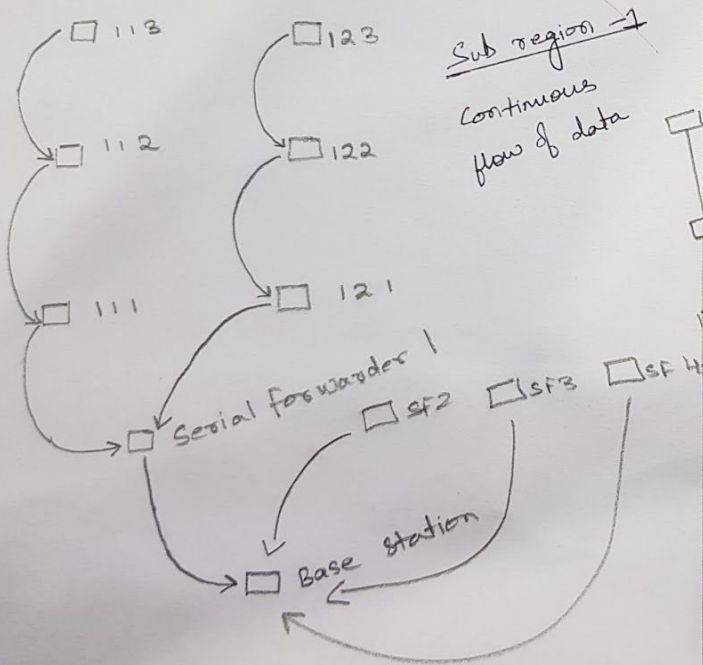 113
123
Sub region -1
Continuous
flow of data
112
122
111
121
Serial Forwarder 1
SF2
SF3
SF4
Base Station